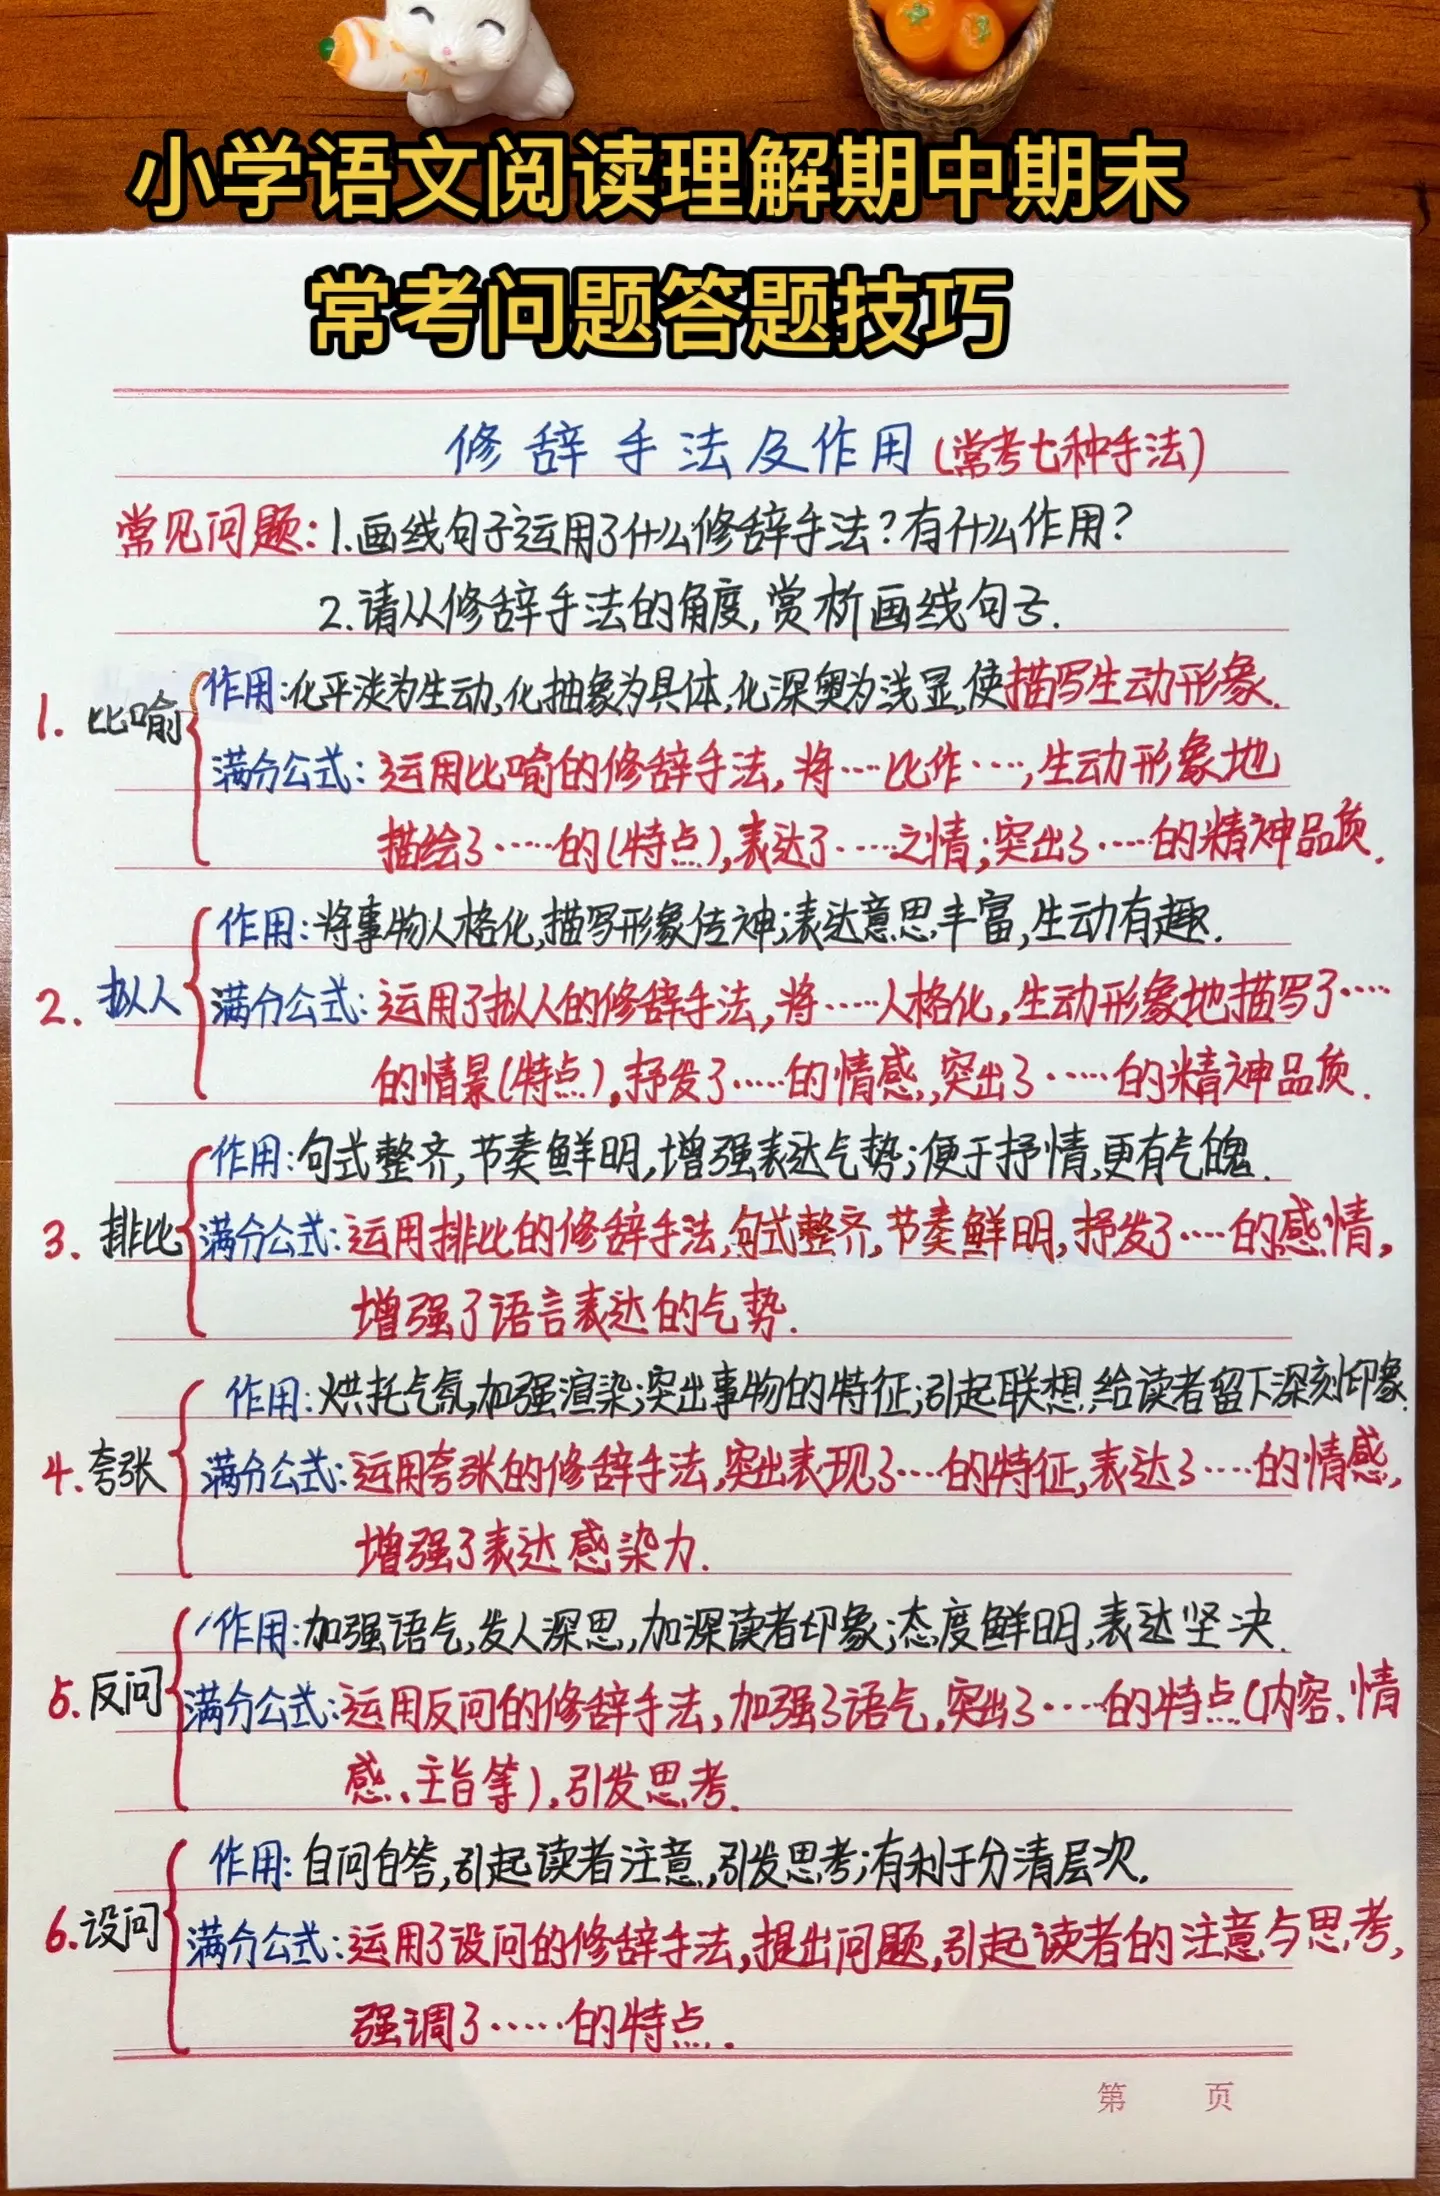 小学语文阅读理解期中期末
常考问题答题技巧
修辞手法及作用(常考七种手法)
常见问题:1.画线句子运用了什么修辞手法?有什么作用?
2.请从修辞手法的角度,赏析画线句子.
1.比喻
作用:化平淡为生动,化抽象为具体,化深奥为浅显,使描写生动形象.
满分公式:运用比喻的修辞手法,将……比作……,生动形象地
描绘了……的(特点),表达了……之情;突出了……的精神品质.
2.拟人
作用:将事物人格化,描写形象传神;表达意思丰富,生动有趣.
满分公式:运用了拟人的修辞手法,将……人格化,生动形象地描写了……
的情景(特点),抒发了……的情感,突出了……的精神品质.
3.排比
作用:句式整齐,节奏鲜明,增强表达气势;便于抒情,更有气魄.
满分公式:运用排比的修辞手法,句式整齐,节奏鲜明,抒发了……的感情,
增强了语言表达的气势.
4.夸张
作用:烘托气氛,加强渲染;突出事物的特征;引起联想,给读者留下深刻印象.
满分公式:运用夸张的修辞手法,突出表现了……的特征,表达了……的情感,
增强了表达感染力.
5.反问
作用:加强语气,发人深思,加深读者印象;态度鲜明,表达坚决.
满分公式:运用反问的修辞手法,加强了语气,突出了……的特点(内容、情
感、主旨等),引发思考.
6.设问
作用:自问自答,引起读者注意,引发思考;有利于分清层次.
满分公式:运用了设问的修辞手法,提出问题,引起读者的注意与思考,
强调了……的特点.
第 页